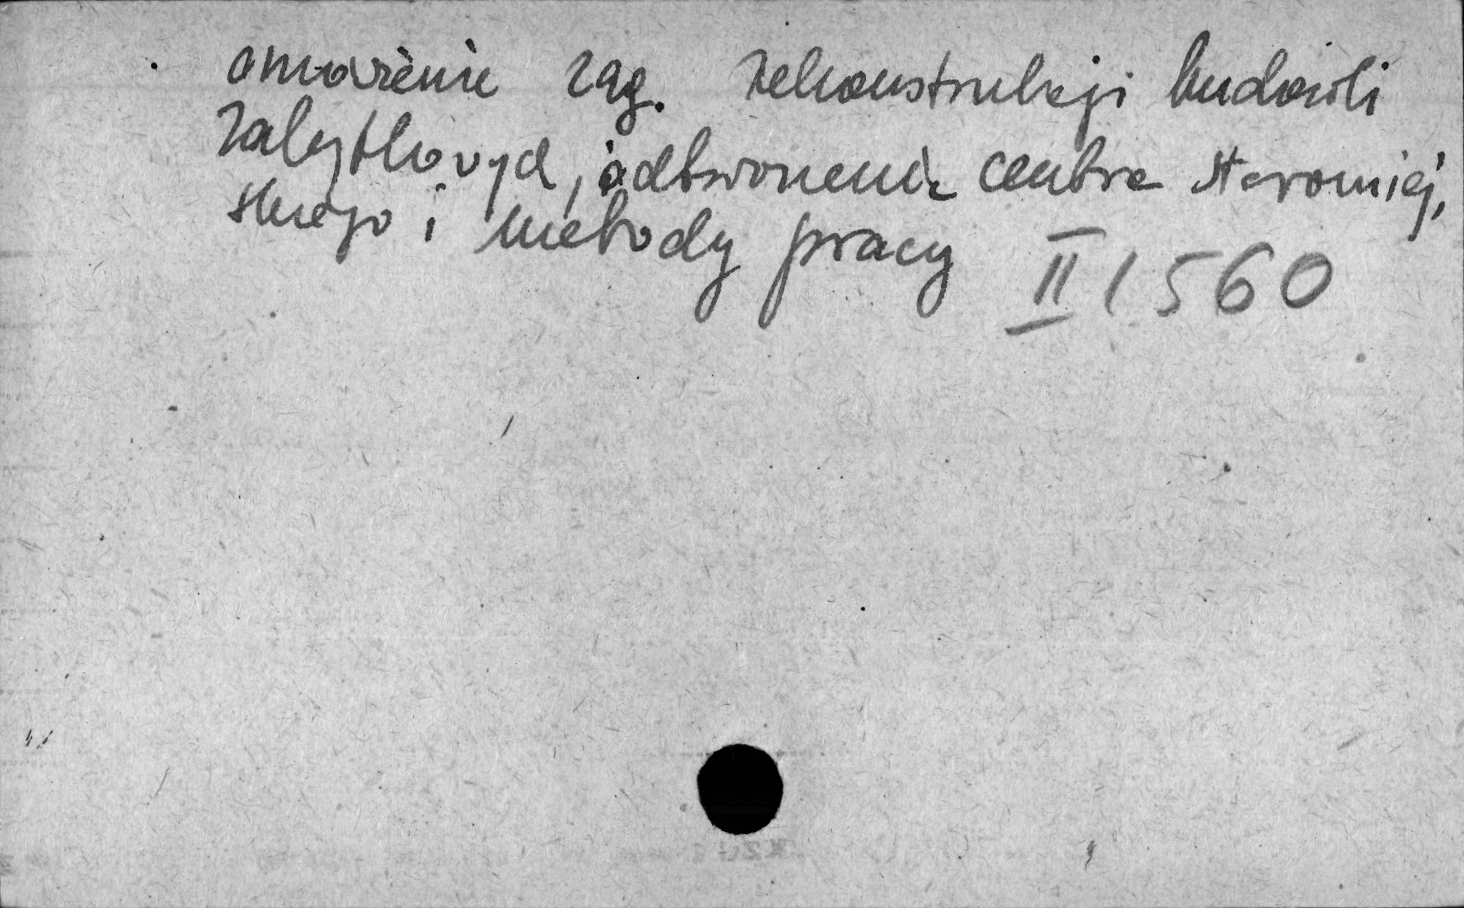 omówienie zag. rekonstrukcji budowli
zabytkowych, odtworzenia centra staromiej,
skiego i metody pracy II 1560